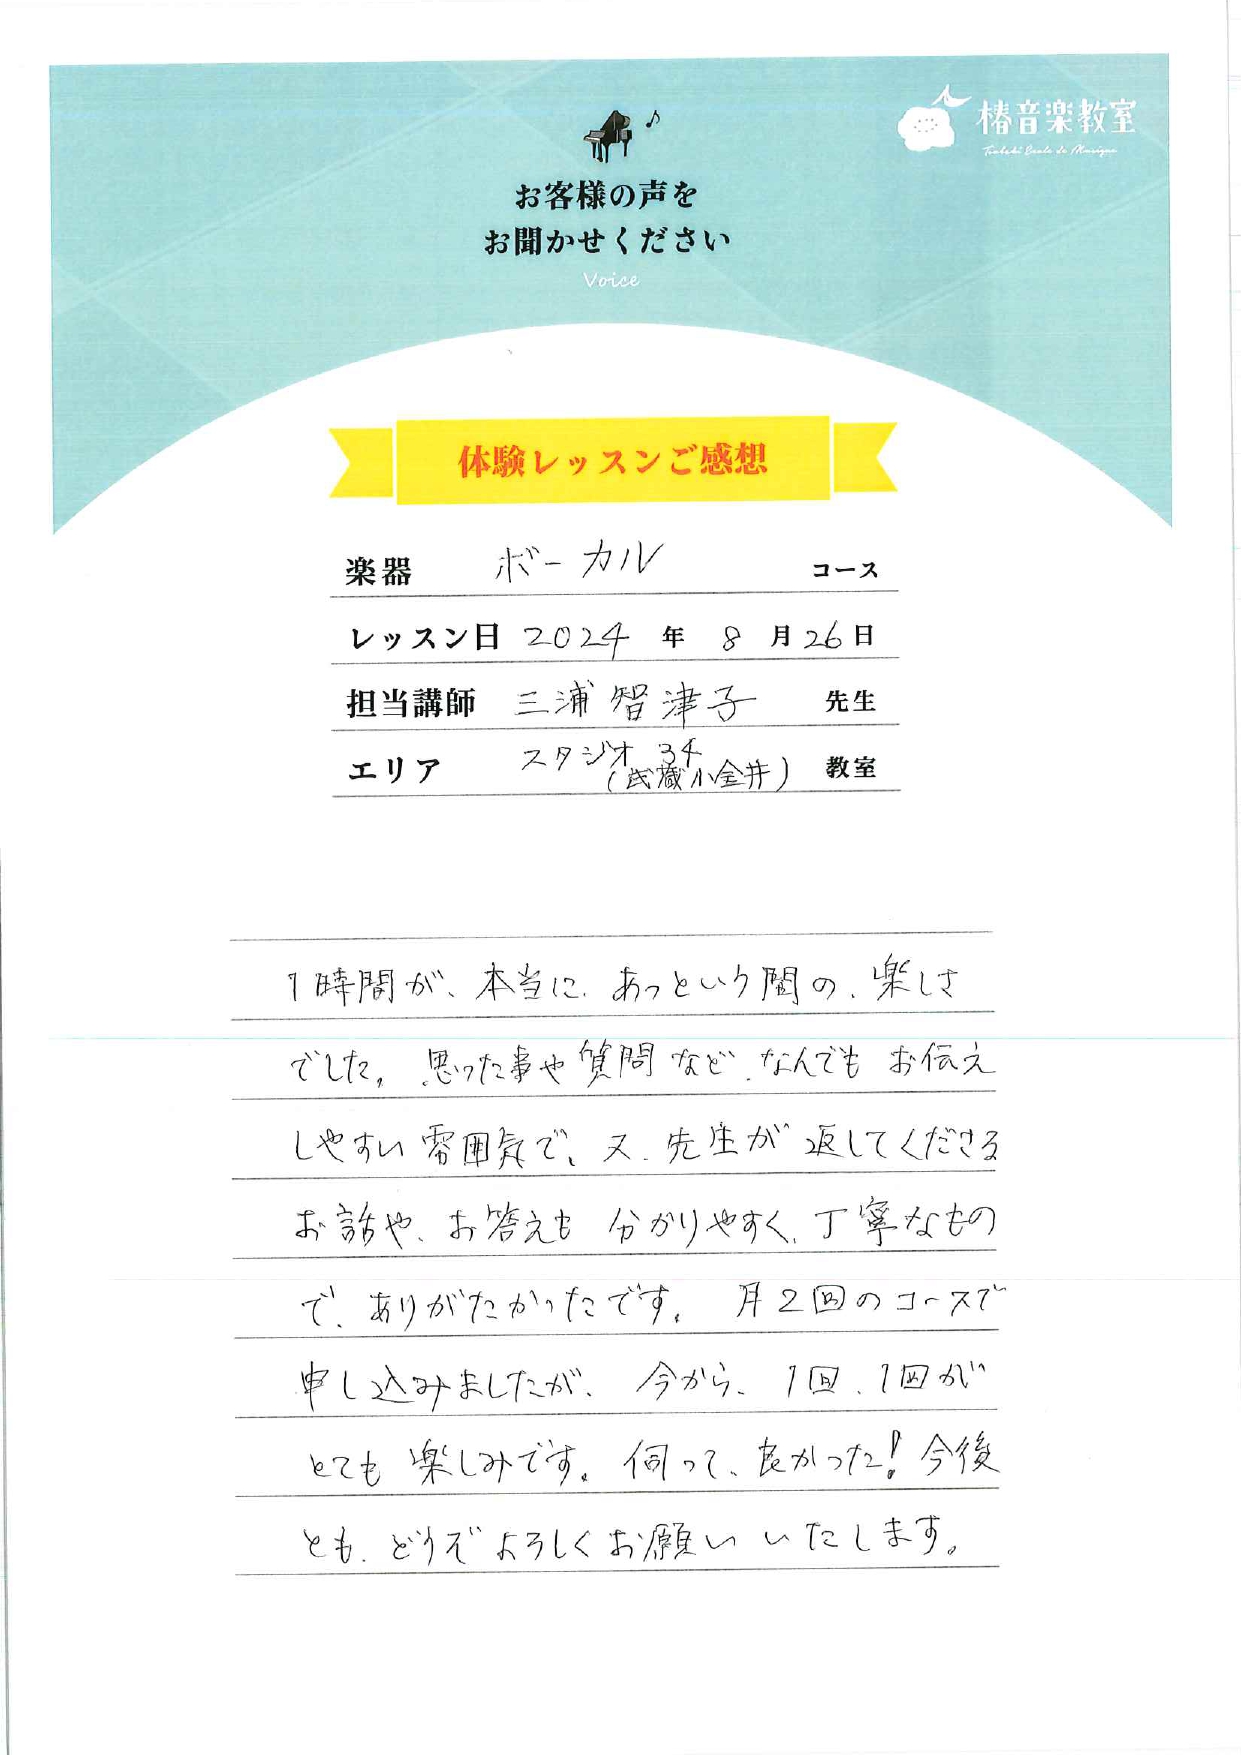 椿音楽教室
Tsubaki Ecole de Musique
お客様の声を
お聞かせください
Voice
体験レッスンご感想
楽器 ボーカル コース
レッスン日 2024 年 8 月 26 日
担当講師 三浦 智津子 先生
エリア スタジオ 34 (武蔵小金井) 教室
1時間が、本当に、あっという間の、楽しさ
でした。思った事や質問など、なんでもお伝え
しやすい雰囲気で、又、先生が返してくださる
お話や、お答えも分かりやすく、丁寧なもの
で、ありがたかったです。月2回のコースで
申し込みましたが、今から、1回、1回が
とても楽しみです。伺って、良かった!今後
とも、どうぞよろしくお願いいたします。